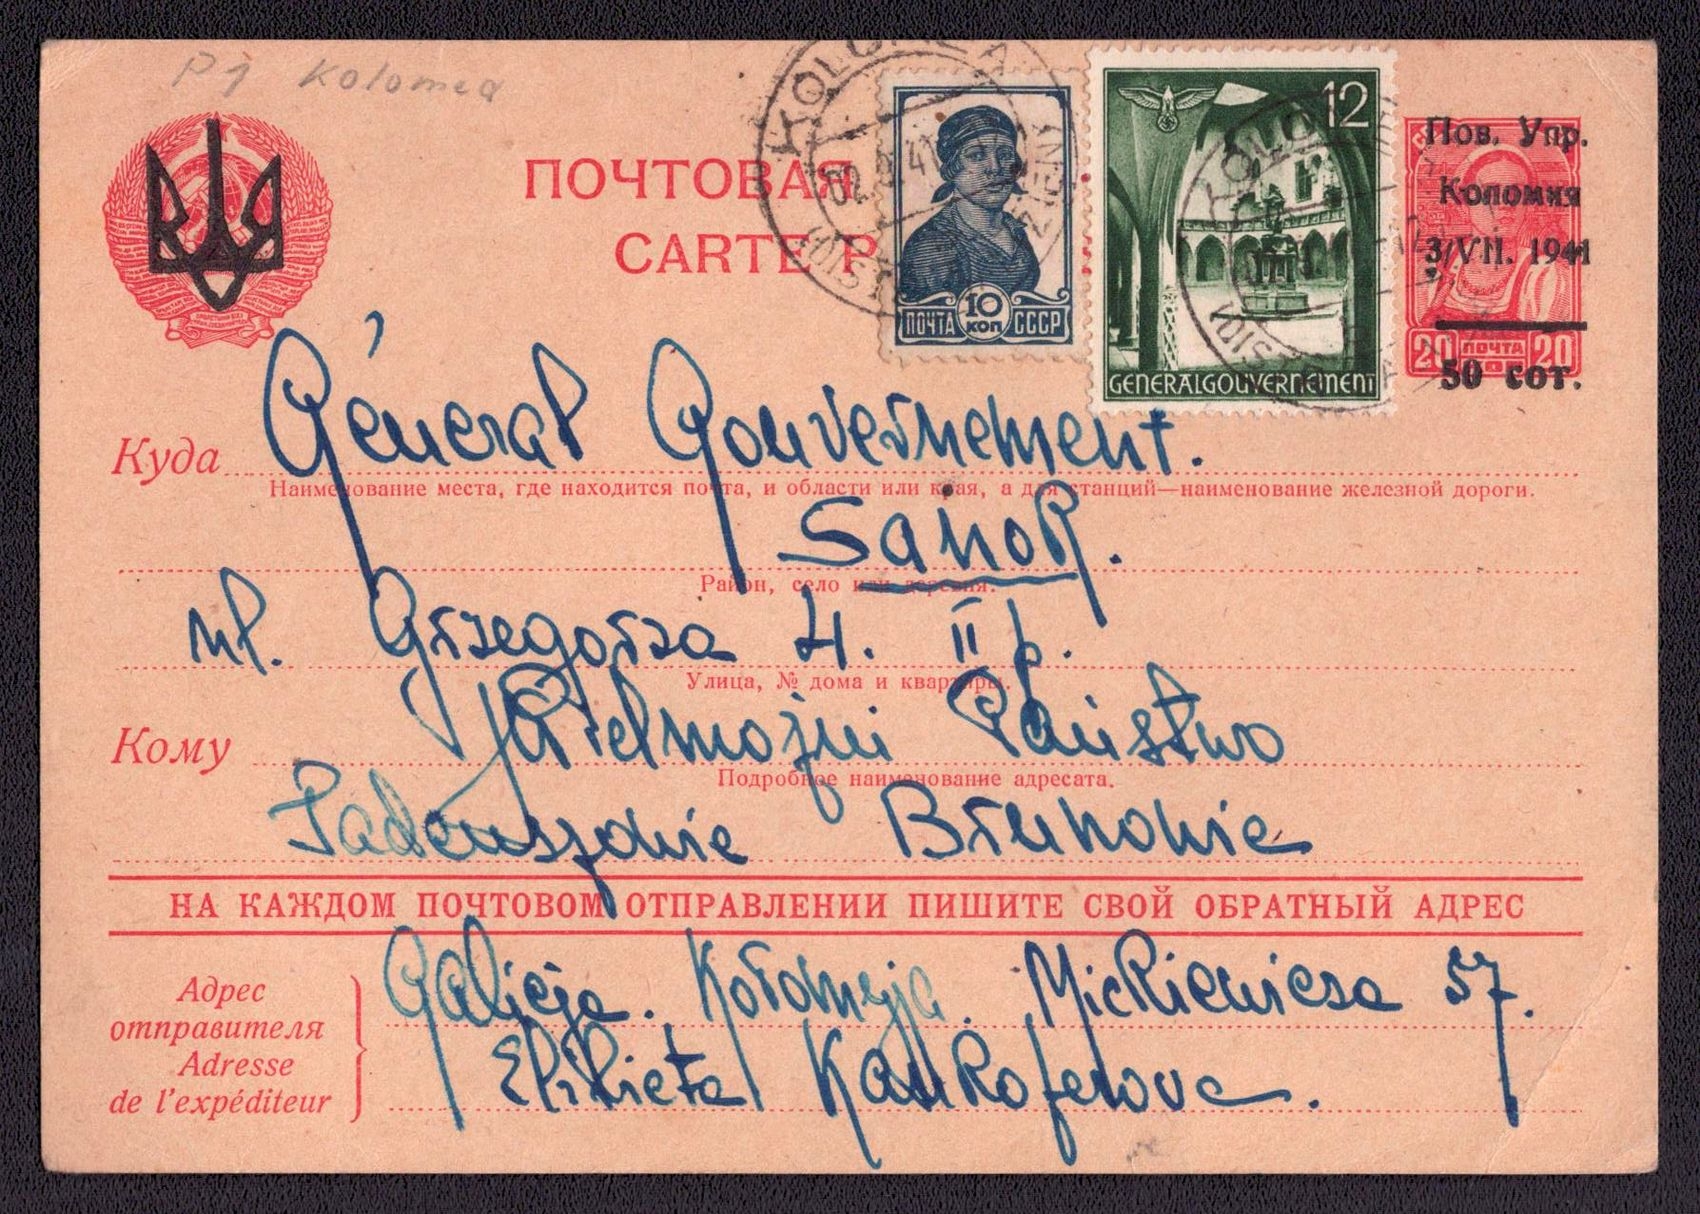 P1 Kolomea
ПОЧТОВАЯ
CARTE P
KOLOMEA
02. 8. 41
10
КОП
ПОЧТА СССР
12
GENERALGOUVERNEMENT
Пов. Упр.
Коломия
3/VII. 1941
50 сот.
20 ПОЧТА 20
Куда Général Gouvernement.
Наименование места, где находится почта, и области или края, а для станций—наименование железной дороги.
Sanok.
Район, село или деревня.
ul. Grzegorza 4. II p.
Улица, № дома и квартиры.
Кому Wielmożni Państwo
Подробное наименование адресата.
Tadeuszowie
НА КАЖДОМ ПОЧТОВОМ ОТПРАВЛЕНИИ ПИШИТЕ СВОЙ ОБРАТНЫЙ АДРЕС
Адрес
отправителя
Adresse
de l'expéditeur
Galicja. Kołomyja. Mickiewicza 57.